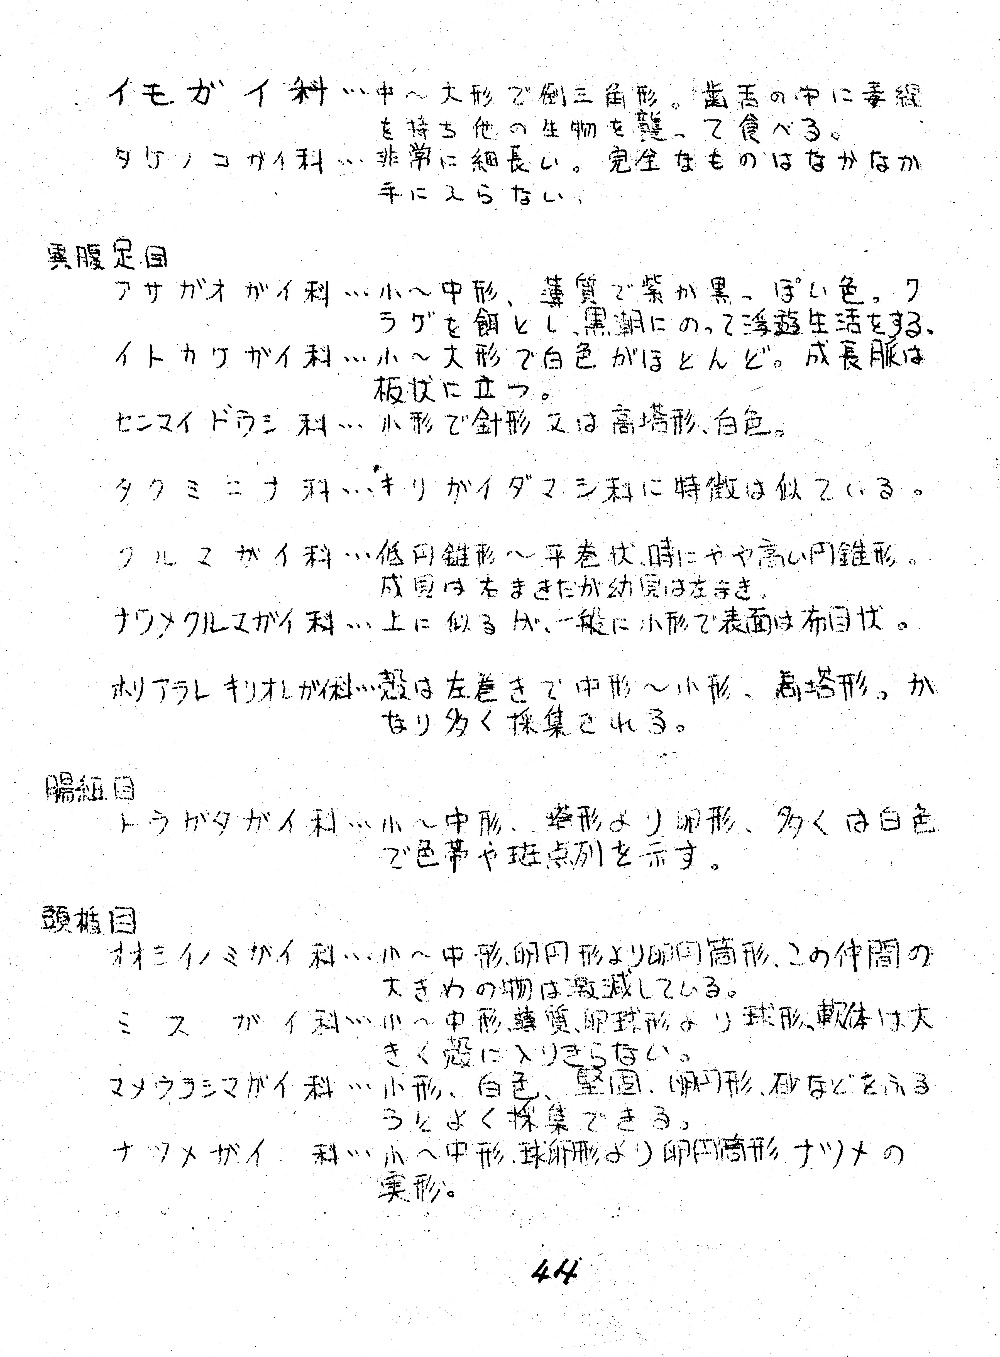 イモガイ科…中〜大形で倒三角形。歯舌の中に毒線
を持ち他の生物を襲って食べる。
タケノコガイ科…非常に細長い。完全なものはなかなか
手に入らない。
異腹足目
アサガオガイ科…小〜中形、薄質で紫か黒っぽい色。ク
ラゲを餌とし、黒潮にのって浮遊生活をする。
イトカケガイ科…小〜大形で白色がほとんど。成長脈は
板状に立つ。
センマイドウシ科…小形で針形又は高塔形、白色。
タクミニナ科…キリガイダマシ科に特徴は似ている。
クルマガイ科…低円錐形〜平巻状、時にやや高い円錐形。
成貝は右まきだが幼貝は左まき。
ナワメクルマガイ科…上に似るが、一般に小形で表面は布目状。
ホリアラレキリオレガイ科…殻は左巻きで中形〜小形、高塔形。か
なり多く採集される。
腸紐目
トウガタガイ科…小〜中形、塔形より卵形、多くは白色
で色帯や斑点列を示す。
頭楯目
オオシイノミガイ科…小〜中形、卵円形より卵円筒形、この仲間の
大きめの物は激減している。
ミスガイ科…小〜中形、薄質、卵球形より球形、軟体は大
きく殻に入りきらない。
マメウラシマガイ科…小形、白色、堅固、卵円形、砂などをふる
うとよく採集できる。
ナツメガイ科…小〜中形、球卵形より卵円筒形、ナツメの
実形。
44